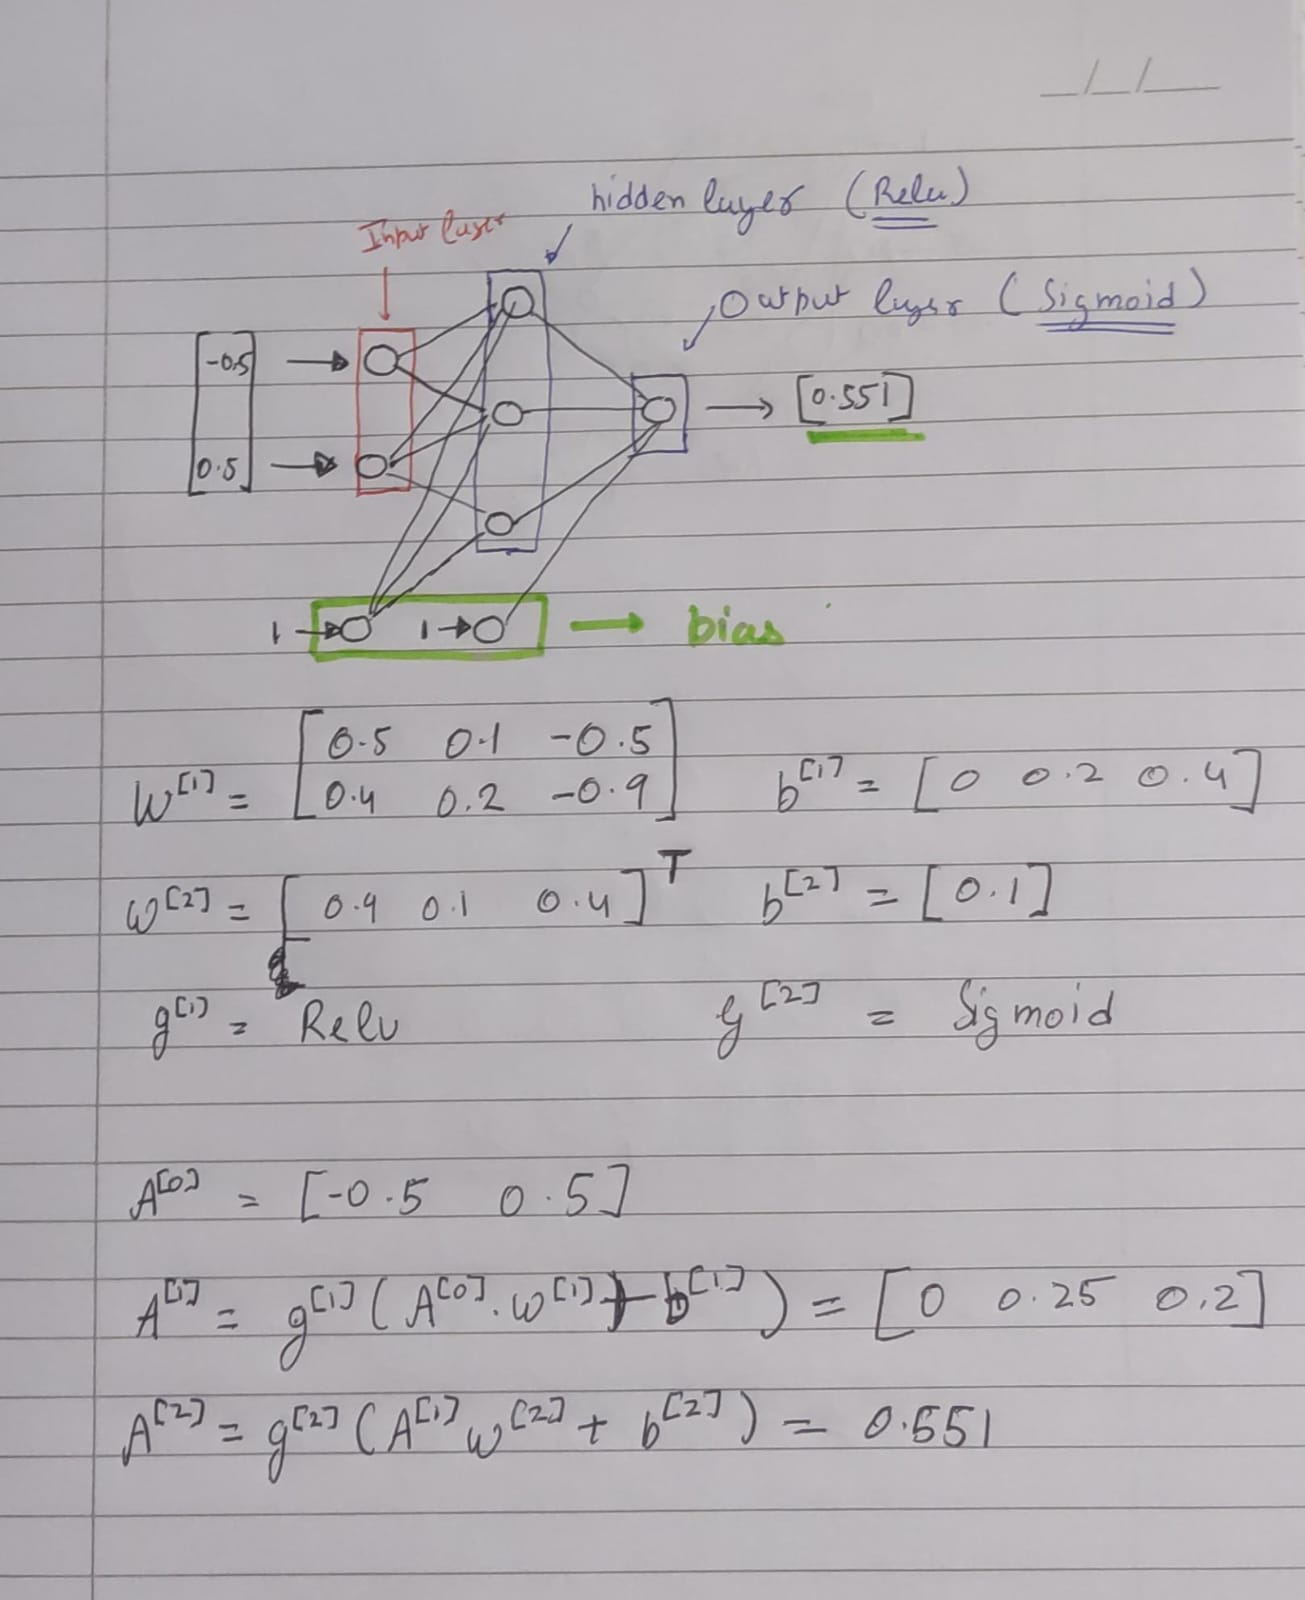 _/_/__
hidden layer (Relu)
Input layer
Output layer (Sigmoid)
[-0.5
0.5]
[0.551]
1 1 bias
W[1] = [0.5 0.1 -0.5
0.4 0.2 -0.9] b[1] = [0 0.2 0.4]
W[2] = [0.9 0.1 0.4]T b[2] = [0.1]
g[1] = Relu g[2] = Sigmoid
A[0] = [-0.5 0.5]
A[1] = g[1](A[0].W[1] + b[1]) = [0 0.25 0.2]
A[2] = g[2](A[1]W[2] + b[2]) = 0.551